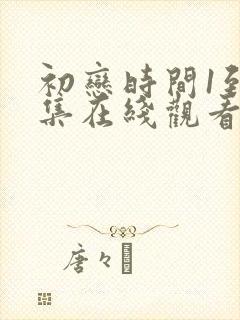 初戀時間1至
集在綫觀看
唐々